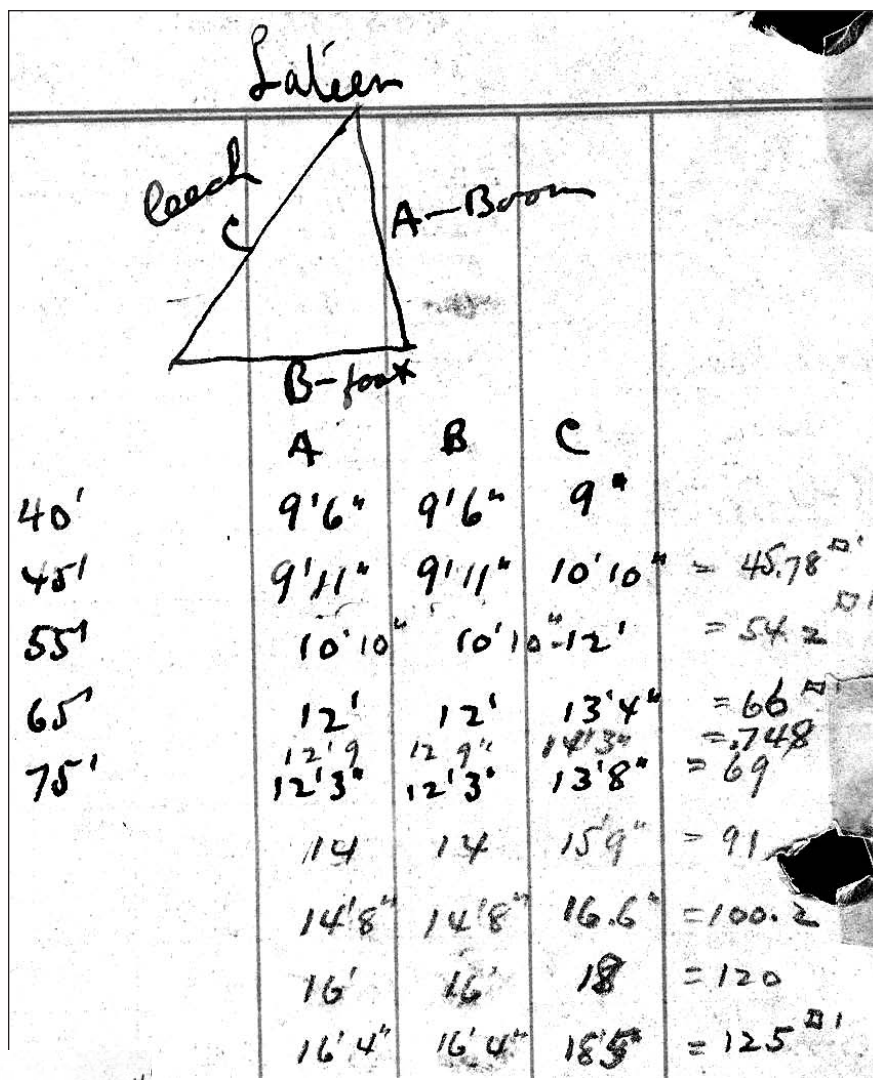 Lateen
leech
C
A-Boom
B-foot
A B C
40' 9'6" 9'6" 9"
45' 9'11" 9'11" 10'10" = 45.78□'
55' 10'10" 10'10"-12' = 54.2□'
65' 12' 12' 13'4" = 66□'
12'9 12 9" 14'3" = .748
75' 12'3" 12'3" 13'8" = 69
14 14 15'9" = 91
14'8" 14'8" 16.6" = 100.2
16' 16' 18 = 120
16'4" 16'4" = 125□'